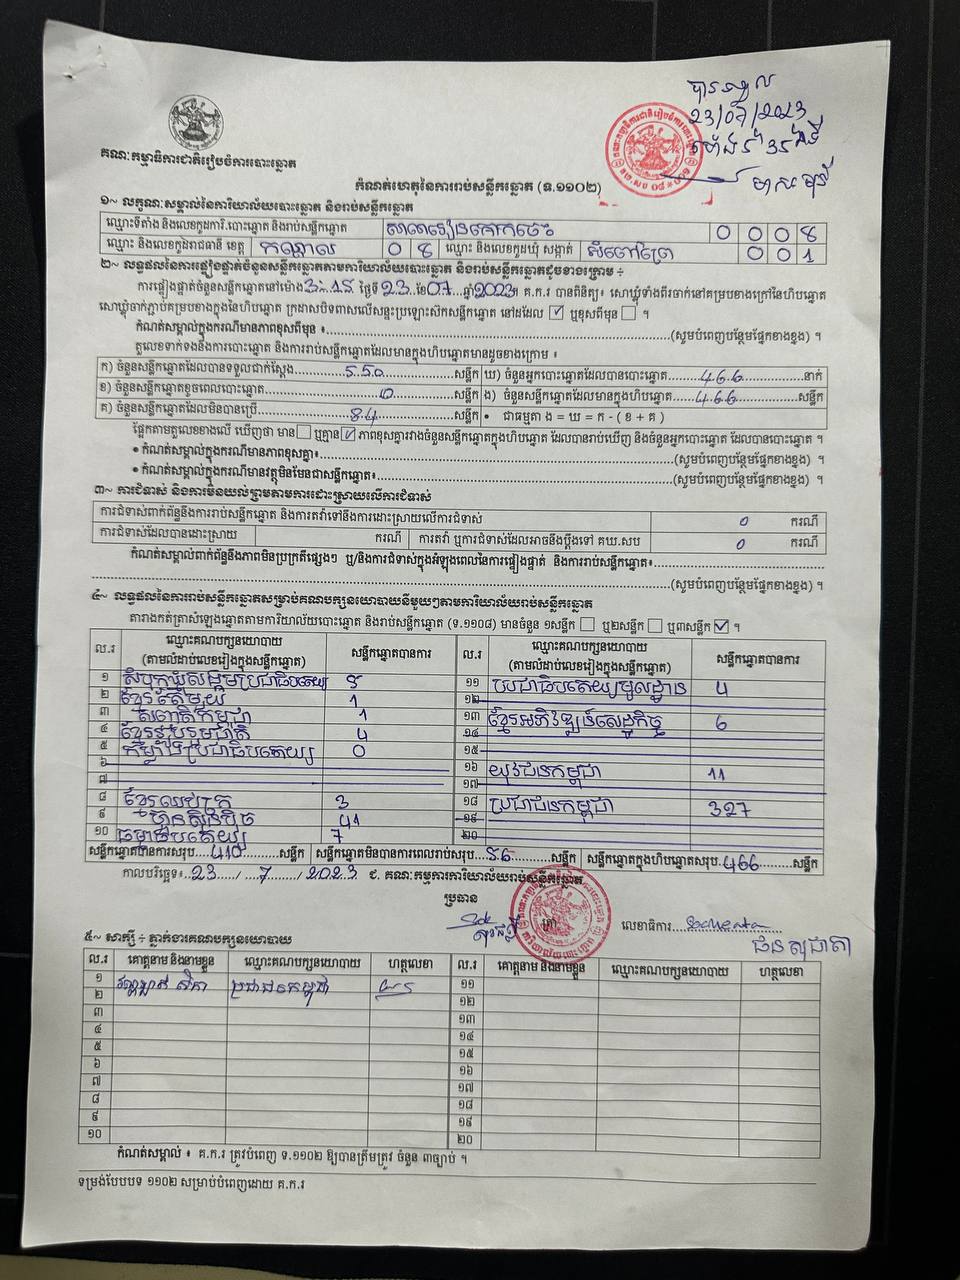 បានទទួល
23/07/2023
ម៉ោង
គណៈកម្មាធិការជាតិរៀបចំការបោះឆ្នោត
កំណត់ហេតុនៃការរាប់សន្លឹកឆ្នោត (ទ.១១០២)
១~ លក្ខណៈសម្គាល់នៃការិយាល័យបោះឆ្នោត និងរាប់សន្លឹកឆ្នោត
ឈ្មោះទីតាំង និងលេខកូដការិ.បោះឆ្នោត និងរាប់សន្លឹកឆ្នោត 0 0 0 8
ឈ្មោះ និងលេខកូដរាជធានី ខេត្ត កណ្តាល 0 8 ឈ្មោះ និងលេខកូដឃុំ សង្កាត់ សំពៅព្រៃ 0 0 1
២~ លទ្ធផលនៃការផ្ទៀងផ្ទាត់ចំនួនសន្លឹកឆ្នោតតាមការិយាល័យបោះឆ្នោត និងរាប់សន្លឹកឆ្នោតដូចខាងក្រោម ÷
ការផ្ទៀងផ្ទាត់ចំនួនសន្លឹកឆ្នោតនៅម៉ោង 3:15 ថ្ងៃទី 23 ខែ 07 ឆ្នាំ 2023 គ.ក.រ បានពិនិត្យ៖ សោឃ្មុំទាំងពីរចាក់នៅគម្របខាងក្រៅនៃហិបឆ្នោត
សោឃ្មុំចាក់ភ្ជាប់គម្របខាងក្នុងនៃហិបឆ្នោត ក្រដាសបិទពាសលើសន្ទះប្រឡោះសិកសន្លឹកឆ្នោត នៅដដែល ☑ ឬខុសពីមុន ☐ ។
កំណត់សម្គាល់ក្នុងករណីមានភាពខុសពីមុន ៖ (សូមបំពេញបន្ថែមផ្នែកខាងខ្នង) ។
តួលេខទាក់ទងនឹងការបោះឆ្នោត និងការរាប់សន្លឹកឆ្នោតដែលមានក្នុងហិបឆ្នោតមានដូចខាងក្រោម ៖
ក) ចំនួនសន្លឹកឆ្នោតដែលបានទទួលជាក់ស្តែង 550 សន្លឹក ឃ) ចំនួនអ្នកបោះឆ្នោតដែលបានបោះឆ្នោត 466 នាក់
ខ) ចំនួនសន្លឹកឆ្នោតខូចពេលបោះឆ្នោត 0 សន្លឹក ង) ចំនួនសន្លឹកឆ្នោតដែលមានក្នុងហិបឆ្នោត 466 សន្លឹក
គ) ចំនួនសន្លឹកឆ្នោតដែលមិនបានប្រើ 84 សន្លឹក • ជាធម្មតា ង = ឃ = ក - ( ខ + គ )
ផ្អែកតាមតួលេខខាងលើ ឃើញថា មាន ☐ ឬគ្មាន ☑ ភាពខុសគ្នារវាងចំនួនសន្លឹកឆ្នោតក្នុងហិបឆ្នោត ដែលបានរាប់ឃើញ និងចំនួនអ្នកបោះឆ្នោត ដែលបានបោះឆ្នោត ។
• កំណត់សម្គាល់ក្នុងករណីមានភាពខុសគ្នា៖ (សូមបំពេញបន្ថែមផ្នែកខាងខ្នង) ។
• កំណត់សម្គាល់ក្នុងករណីមានវត្ថុមិនមែនជាសន្លឹកឆ្នោត៖ (សូមបំពេញបន្ថែមផ្នែកខាងខ្នង) ។
៣~ ការជំទាស់ និងការមិនយល់ព្រមតាមការដោះស្រាយលើការជំទាស់
ការជំទាស់ពាក់ព័ន្ធនឹងការរាប់សន្លឹកឆ្នោត និងការតវ៉ាទៅនឹងការដោះស្រាយលើការជំទាស់ 0 ករណី
ការជំទាស់ដែលបានដោះស្រាយ ករណី ការតវ៉ា ឬការជំទាស់ដែលអាចនឹងប្តឹងទៅ គឃ.សប 0 ករណី
កំណត់សម្គាល់ពាក់ព័ន្ធនឹងភាពមិនប្រក្រតីផ្សេងៗ ឬ/និងការជំទាស់ក្នុងអំឡុងពេលនៃការផ្ទៀងផ្ទាត់ និងការរាប់សន្លឹកឆ្នោត៖
(សូមបំពេញបន្ថែមផ្នែកខាងខ្នង) ។
៤~ លទ្ធផលនៃការរាប់សន្លឹកឆ្នោតសម្រាប់គណបក្សនយោបាយនីមួយៗតាមការិយាល័យរាប់សន្លឹកឆ្នោត
តារាងកត់ត្រាសំឡេងឆ្នោតតាមការិយាល័យបោះឆ្នោត និងរាប់សន្លឹកឆ្នោត (ទ.១១០៨) មានចំនួន ១សន្លឹក ☐ ឬ២សន្លឹក ☐ ឬ៣សន្លឹក ☑ ។
ល.រ ឈ្មោះគណបក្សនយោបាយ (តាមលំដាប់លេខរៀងក្នុងសន្លឹកឆ្នោត) សន្លឹកឆ្នោតបានការ ល.រ ឈ្មោះគណបក្សនយោបាយ (តាមលំដាប់លេខរៀងក្នុងសន្លឹកឆ្នោត) សន្លឹកឆ្នោតបានការ
១ សំបុកឃ្មុំសង្គមប្រជាធិបតេយ្យ 5 ១១ ប្រជាធិបតេយ្យមូលដ្ឋាន 4
២ ខ្មែរតែមួយ 1 ១២
៣ សញ្ជាតិកម្ពុជា 1 ១៣ ខ្មែរអភិវឌ្ឍន៍សេដ្ឋកិច្ច 6
៤ ខ្មែររួបរួមជាតិ 4 ១៤
៥ កម្លាំងប្រជាធិបតេយ្យ 0 ១៥
៦ ១៦ យុវជនកម្ពុជា 11
៧ ១៧
៨ ខ្មែរឈប់ក្រ 3 ១៨ ប្រជាជនកម្ពុជា 327
៩ ហ៊្វុនស៊ិនប៉ិច 41 ១៩
១០ ធម្មាធិបតេយ្យ 7 ២០
សន្លឹកឆ្នោតបានការសរុប 410 សន្លឹក សន្លឹកឆ្នោតមិនបានការពេលរាប់សរុប 56 សន្លឹក សន្លឹកឆ្នោតក្នុងហិបឆ្នោតសរុប 466 សន្លឹក
កាលបរិច្ឆេទ៖ 23 / 7 / 2023 ជ. គណៈកម្មការការិយាល័យរាប់សន្លឹកឆ្នោត
ប្រធាន
លេខាធិការ
៥~ សាក្សី ÷ ភ្នាក់ងារគណបក្សនយោបាយ
ល.រ គោត្តនាម និងនាមខ្លួន ឈ្មោះគណបក្សនយោបាយ ហត្ថលេខា ល.រ គោត្តនាម និងនាមខ្លួន ឈ្មោះគណបក្សនយោបាយ ហត្ថលេខា
១ ប្រជាជនកម្ពុជា ១១
២ ១២
៣ ១៣
៤ ១៤
៥ ១៥
៦ ១៦
៧ ១៧
៨ ១៨
៩ ១៩
១០ ២០
កំណត់សម្គាល់ ៖ គ.ក.រ ត្រូវបំពេញ ទ.១១០២ ឱ្យបានត្រឹមត្រូវ ចំនួន ៣ច្បាប់ ។
ទម្រង់បែបបទ ១១០២ សម្រាប់បំពេញដោយ គ.ក.រ